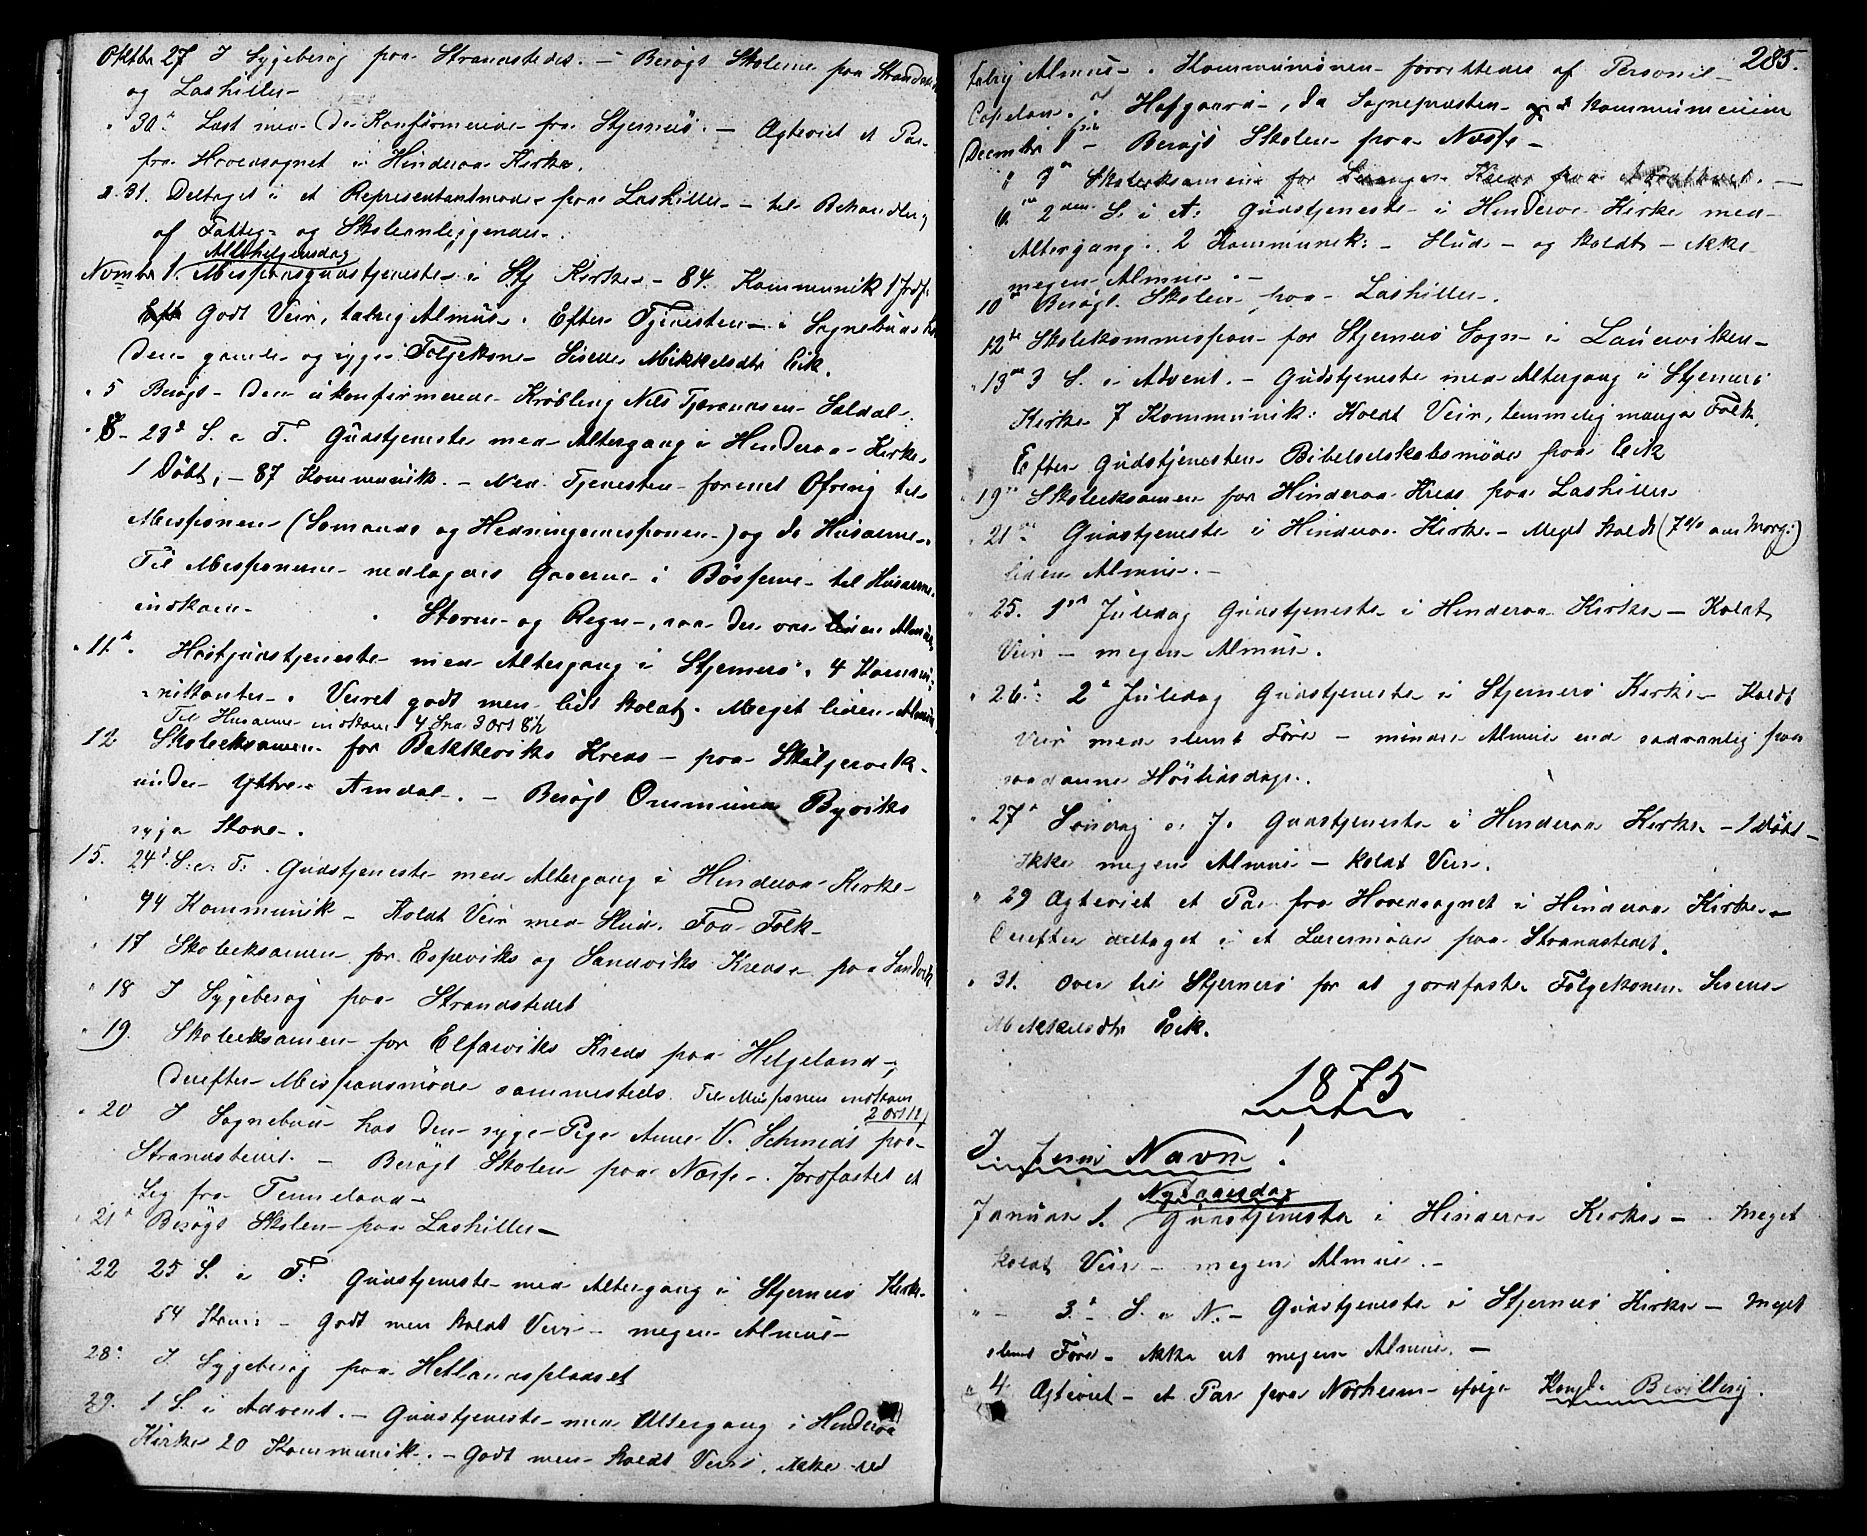 Oktbr 27 I Sygebesøg paa Strandstedet. – Besøgt Skolerne paa Strandstedet
og Lashiller –
" 30te Læst med de Konfirmerede fra Stjernerø. – Ægteviet et Par
fra Hovedsognet i Hinderaa Kirke.
" 31. Deltaget i et Representantmøde paa Lashiller – til Behandling
af Fattig- og Skoleanliggender.
Allehelgensdag
Novmbr 1. Missionsgudstjeneste i Stj Kirke – 84. Kommunik 1 Jordf.
Godt Veir, talrig Almue. Efter Tjenesten i Sognebud hos
den gamle og syge Føljekone Lisene Mikkelsdtr Eik.
" 5 Besøgt den ukonfirmerede Krøbling Nils Tjerandsen Soldal.
" 8 – 23de S. e. T. Gudstjeneste med Altergang i Hinderaa Kirke.
1 Døbt, – 87 Kommunik. – Med Tjenesten forenet Ofring til
Missionen (Sømands og Hedningemissionen) og de Husarme.
Til Missionerne nedlagdes Gaverne i Bøsserne til Husarme
indkom
Storm og Regn, saa der var liden Almue
" 11te Høstgudstjeneste med Altergang i Stjernerø. 4 Kommu-
nikanter. Veiret godt men lidt koldt. Meget liden Almue
Til Husarme indkom 4 Spd 3 Ort 8 ß
12 Skoleeksamen for Bakkeviks Kreds – paa Skeljervik
under Yttre Amdal. – Besøgt Omund Byviks
syge Kone.
15. 24de S. e. T. Gudstjeneste med Altergang i Hinderaa Kirke
44 Kommunik – Koldt Veir med Slud. Faa Folk –
" 17 Skoleeksamen for Espeviks og Sandviks Kredse paa Sandvik
" 18 I Sygebesøg paa Strandstedet
" 19. Skoleeksamen for Elfarviks Kreds paa Helgeland –,
derefter Missionsmøde sammesteds. Til Missionen indkom
2 Ort 12 ß
" 20 I Sognebud hos den syge Pige Anne V. Schmidt paa
Strandstedet. – Besøgt Skolen paa Næsse. Jordfæstet et
Lig fra Tenneland –
" 21de Besøgt Skolen paa Lashiller –
22 25 S. e. T: Gudstjeneste med Altergang i Stjernerø Kirke
54 Komm: – Godt men koldt Veir – megen Almue –
28de I Sygebesøg paa Hetlandspladset
29. 1 S. i Advent. – Gudstjeneste med Altergang i Hinderaa
Kirke 20 Kommunik. – Godt men koldt Veir. Ikke ret
285.
talrig Almue. Kommunionen forrettedes af Personel
Capelan Hofgaard, da Sognepræsten
Decmbr 1ste – Besøgt Skolen paa Næsse –
" 3de Skoleeksamen for Kreds paa
6te 2den S. i A: Gudstjeneste i Hinderaa Kirke med
Altergang. 2 Kommunik: – Slud – og koldt – ikke
megen Almue. –
10de Besøgt Skolen paa Lashiller.
12te Skolekommission for Stjernerø Sogn i Lauervikken –
" 13de 3 S. i Advent. – Gudstjeneste med Altergang i Stjernerø
Kirke 7 Kommunik: Koldt Veir, temmelig mange Folk.
Efter Gudstjenesten Bibelselskabsmøde paa Eik
" 19de Skoleeksamen for Hinderaa Kreds paa Lashiller
" 21de Gudstjeneste i Hinderaa Kirke – Meget koldt (7 om Morg:)
liden Almue. –
" 25. 1ste Juledag Gudstjeneste i Hinderaa Kirke – Koldt
Veir – megen Almue.
" 26de 2de Juledag Gudstjeneste i Stjernerø Kirke – Koldt
Veir med slemt Føre – mindre Almue end sædvanlig paa
saadanne Høitidsdage.
" 27de Søndag e. J. Gudstjeneste i Hinderaa Kirke – 1 Døbt –
Ikke megen Almue – koldt Veir.
" 29 Ægteviet et Par fra Hovedsognet i Hinderaa Kirke –
Derefter deltaget i et Læsermøde paa Strandstedet.
" 31. Over til Stjernerø for at jordfæste Følgekonen Lisene
Mikkelsdtr Eik.
1875
I Jesu Navn!
Nytaarsdag
Januar 1. Gudstjeneste i Hinderaa Kirke – Meget
koldt Veir – megen Almue. –
" – 3de S. e. N. – Gudstjeneste i Stjernerø Kirke – Meget
slemt Føre – Ikke ret megen Almue. –
" 4 Ægteviet et Par paa Norheim ifølge Kongl. Bevilling.